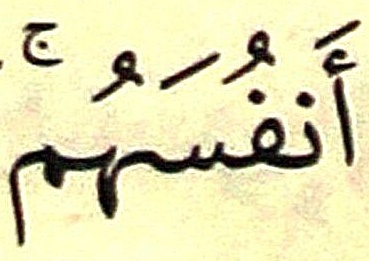 أَنفُسَهُمۚ